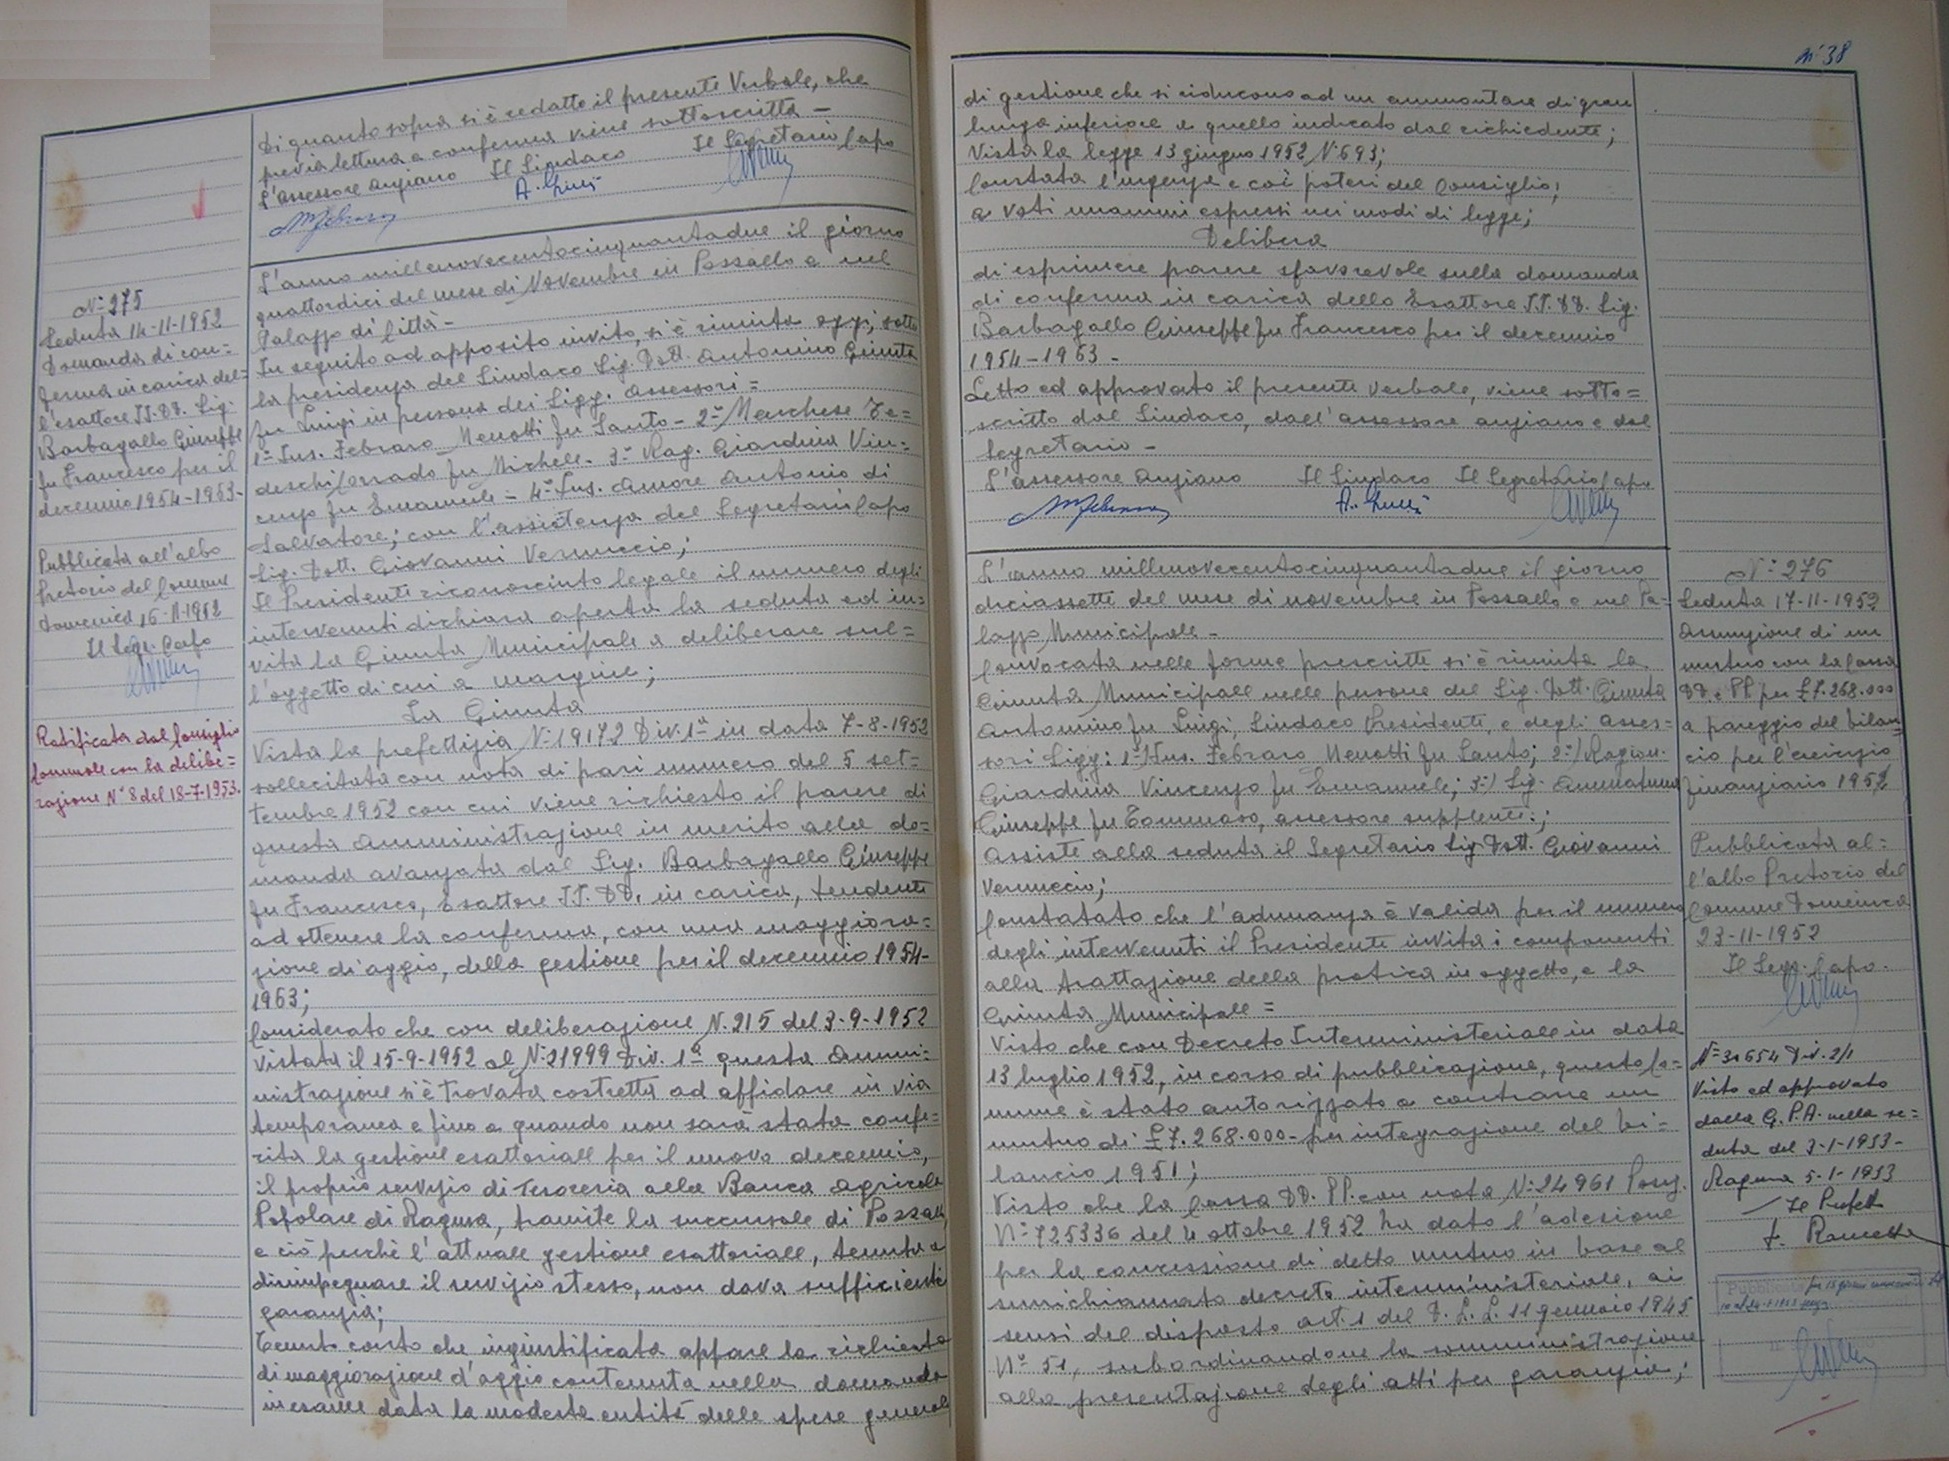 Di quanto sopra si è redatto il presente Verbale, che
previa lettura e conferma viene sottoscritto —
L'assessore anziano Il Sindaco Il Segretario Capo
N: 275
Seduta 14-11-1952
Domanda di con=
ferma in carica del=
l'esattore II. DD. Sig.
Barbagallo Giuseppe
fu Francesco per il
decennio 1954-1963-
Pubblicata all'albo
Pretorio del Comune
Domenica 16-11-1952
Il Segr. Capo
Ratificata dal Consiglio
Comunale con la delibe=
razione N° 8 del 18-7-1953.
L'anno millenovecentocinquantadue il giorno
quattordici del mese di Novembre in Pozzallo e nel
Palazzo di Città-
In seguito ad apposito invito, si è riunita oggi, sotto
la presidenza del Sindaco Sig. Dott. Antonino Giunta
fu Luigi in persona dei Sigg. Assessori =
1° Ins. Febraro Menotti fu Santo - 2° Marchese Te=
deschi Corrado fu Michele - 3° Rag. Giardina Vin=
cenzo fu Emanuele = 4° Ins. Amore Antonio di
Salvatore; con l'assistenza del Segretario Capo
Sig. Dott. Giovanni Vernuccio;
Il Presidente riconosciuto legale il numero degli
intervenuti dichiara aperta la seduta ed in=
vita la Giunta Municipale a deliberare sul=
l'oggetto di cui a margine;
La Giunta
Vista la prefettizia N. 19172 Div. 1ª in data 7-8-1952
sollecitata con nota di pari numero del 5 set=
tembre 1952 con cui viene richiesto il parere di
questa Amministrazione in merito alla do=
manda avanzata dal Sig. Barbagallo Giuseppe
fu Francesco, Esattore II. DD. in carica, tendente
ad ottenere la conferma, con una maggiora=
zione di aggio, della gestione per il decennio 1954-
1963;
Considerato che con deliberazione N. 215 del 3-9-1952
vistata il 15-9-1952 al N: 21999 Div. 1ª questa Ammi=
nistrazione si è trovata costretta ad affidare in via
temporanea e fino a quando non sarà stata confe=
rita la gestione esattoriale per il nuovo decennio,
il proprio servizio di Tesoreria alla Banca Agricola
Popolare di Ragusa, tramite la succursale di Pozzallo,
e ciò perchè l'attuale gestione esattoriale, tenuta a
disimpegnare il servizio stesso, non dava sufficiente
garanzia;
Tenuto conto che ingiustificata appare la richiesta
di maggiorazione d'aggio contenuta nella domanda
in esame data la modesta entità delle spese generali
N° 38
di gestione che si riducono ad un ammontare di gran
lunga inferiore a quello indicato dal richiedente;
Vista la legge 13 giugno 1952 N. 693;
Constatata l'urgenza e coi poteri del Consiglio;
a voti unanimi espressi nei modi di legge;
Delibera
di esprimere parere sfavorevole sulla domanda
di conferma in carica dello Esattore II. DD. Sig.
Barbagallo Giuseppe fu Francesco per il decennio
1954-1963 -
Letto ed approvato il presente verbale, viene sotto=
scritto dal Sindaco, dall'assessore anziano e dal
Segretario -
L'assessore Anziano Il Sindaco Il Segretario Capo
L'anno millenovecentocinquantadue il giorno
diciassette del mese di novembre in Pozzallo e nel Pa=
lazzo Municipale -
Convocata nelle forme prescritte si è riunita la
Giunta Municipale nelle persone del Sig. Dott. Giunta
Antonino fu Luigi, Sindaco Presidente, e degli Asses=
sori Sigg: 1°) Ins. Febraro Menotti fu Santo; 2°) Ragion.
Giardina Vincenzo fu Emanuele; 3°) Sig. Ammatuna
Giuseppe fu Tommaso, assessore supplente;
Assiste alla seduta il Segretario Sig. Dott. Giovanni
Vernuccio;
Constatato che l'adunanza è valida per il numero
degli intervenuti il Presidente invita i componenti
alla trattazione della pratica in oggetto, e la
Giunta Municipale =
Visto che con Decreto Interministeriale in data
13 luglio 1952, in corso di pubblicazione, questo Co=
mune è stato autorizzato a contrarre un
mutuo di £ 7.268.000- per integrazione del bi=
lancio 1951;
Visto che la Cassa DD. PP. con nota N: 24961 Posiz.
N° 725336 del 4 ottobre 1952 ha dato l'adesione
per la concessione di detto mutuo in base al
surrichiamato decreto interministeriale, ai
sensi del disposto art. 1 del D. L. L. 11 gennaio 1945
N° 51, subordinandone la somministrazione
alla presentazione degli atti per garanzia;
N: 276
Seduta 17-11-1952
Assunzione di un
mutuo con la Cassa
DD. e PP. per £ 7.268.000
a pareggio del bilan=
cio per l'esercizio
finanziario 1952
Pubblicata al=
l'albo Pretorio del
Comune Domenica
23-11-1952
Il Segr. Capo.
N° 31654 Div. 2/1
Visto ed approvato
dalla G.P.A. nella se=
duta del 3-1-1953-
Ragusa 5-1-1953
Il Prefetto